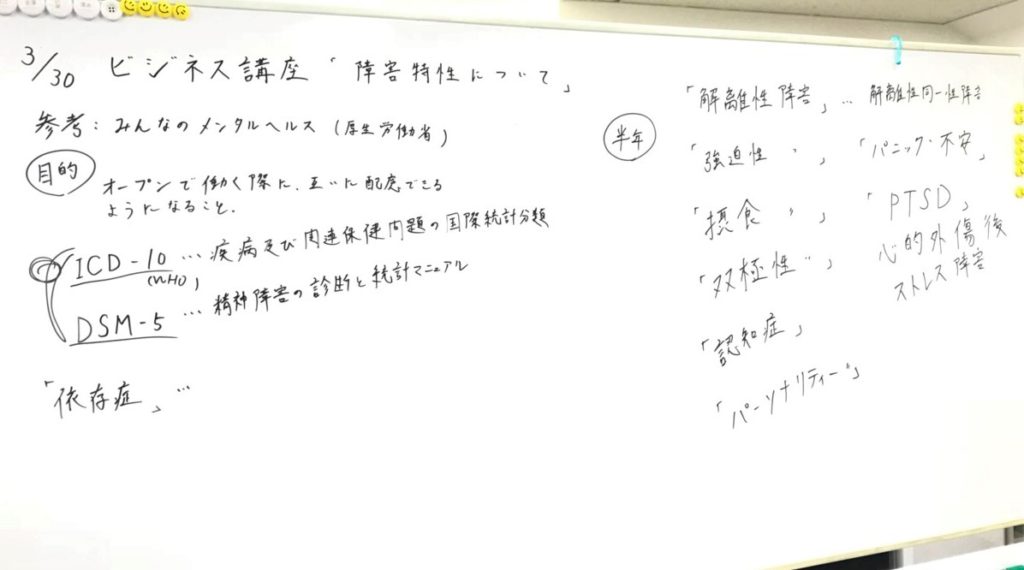 3/30 ビジネス講座「障害特性について」
参考:みんなのメンタルヘルス(厚生労働省)
目的
オープンで働く際に、互いに配慮できる
ようになること.
ICD-10 … 疾病及び関連保健問題の国際統計分類
(WHO)
DSM-5 … 精神障害の診断と統計マニュアル
「依存症」…
半年
「解離性障害」… 解離性同一性障害
「強迫性〃」「パニック・不安」
「摂食〃」「PTSD」
心的外傷後
ストレス障害
「双極性〃」
「認知症」
「パーソナリティー〃」